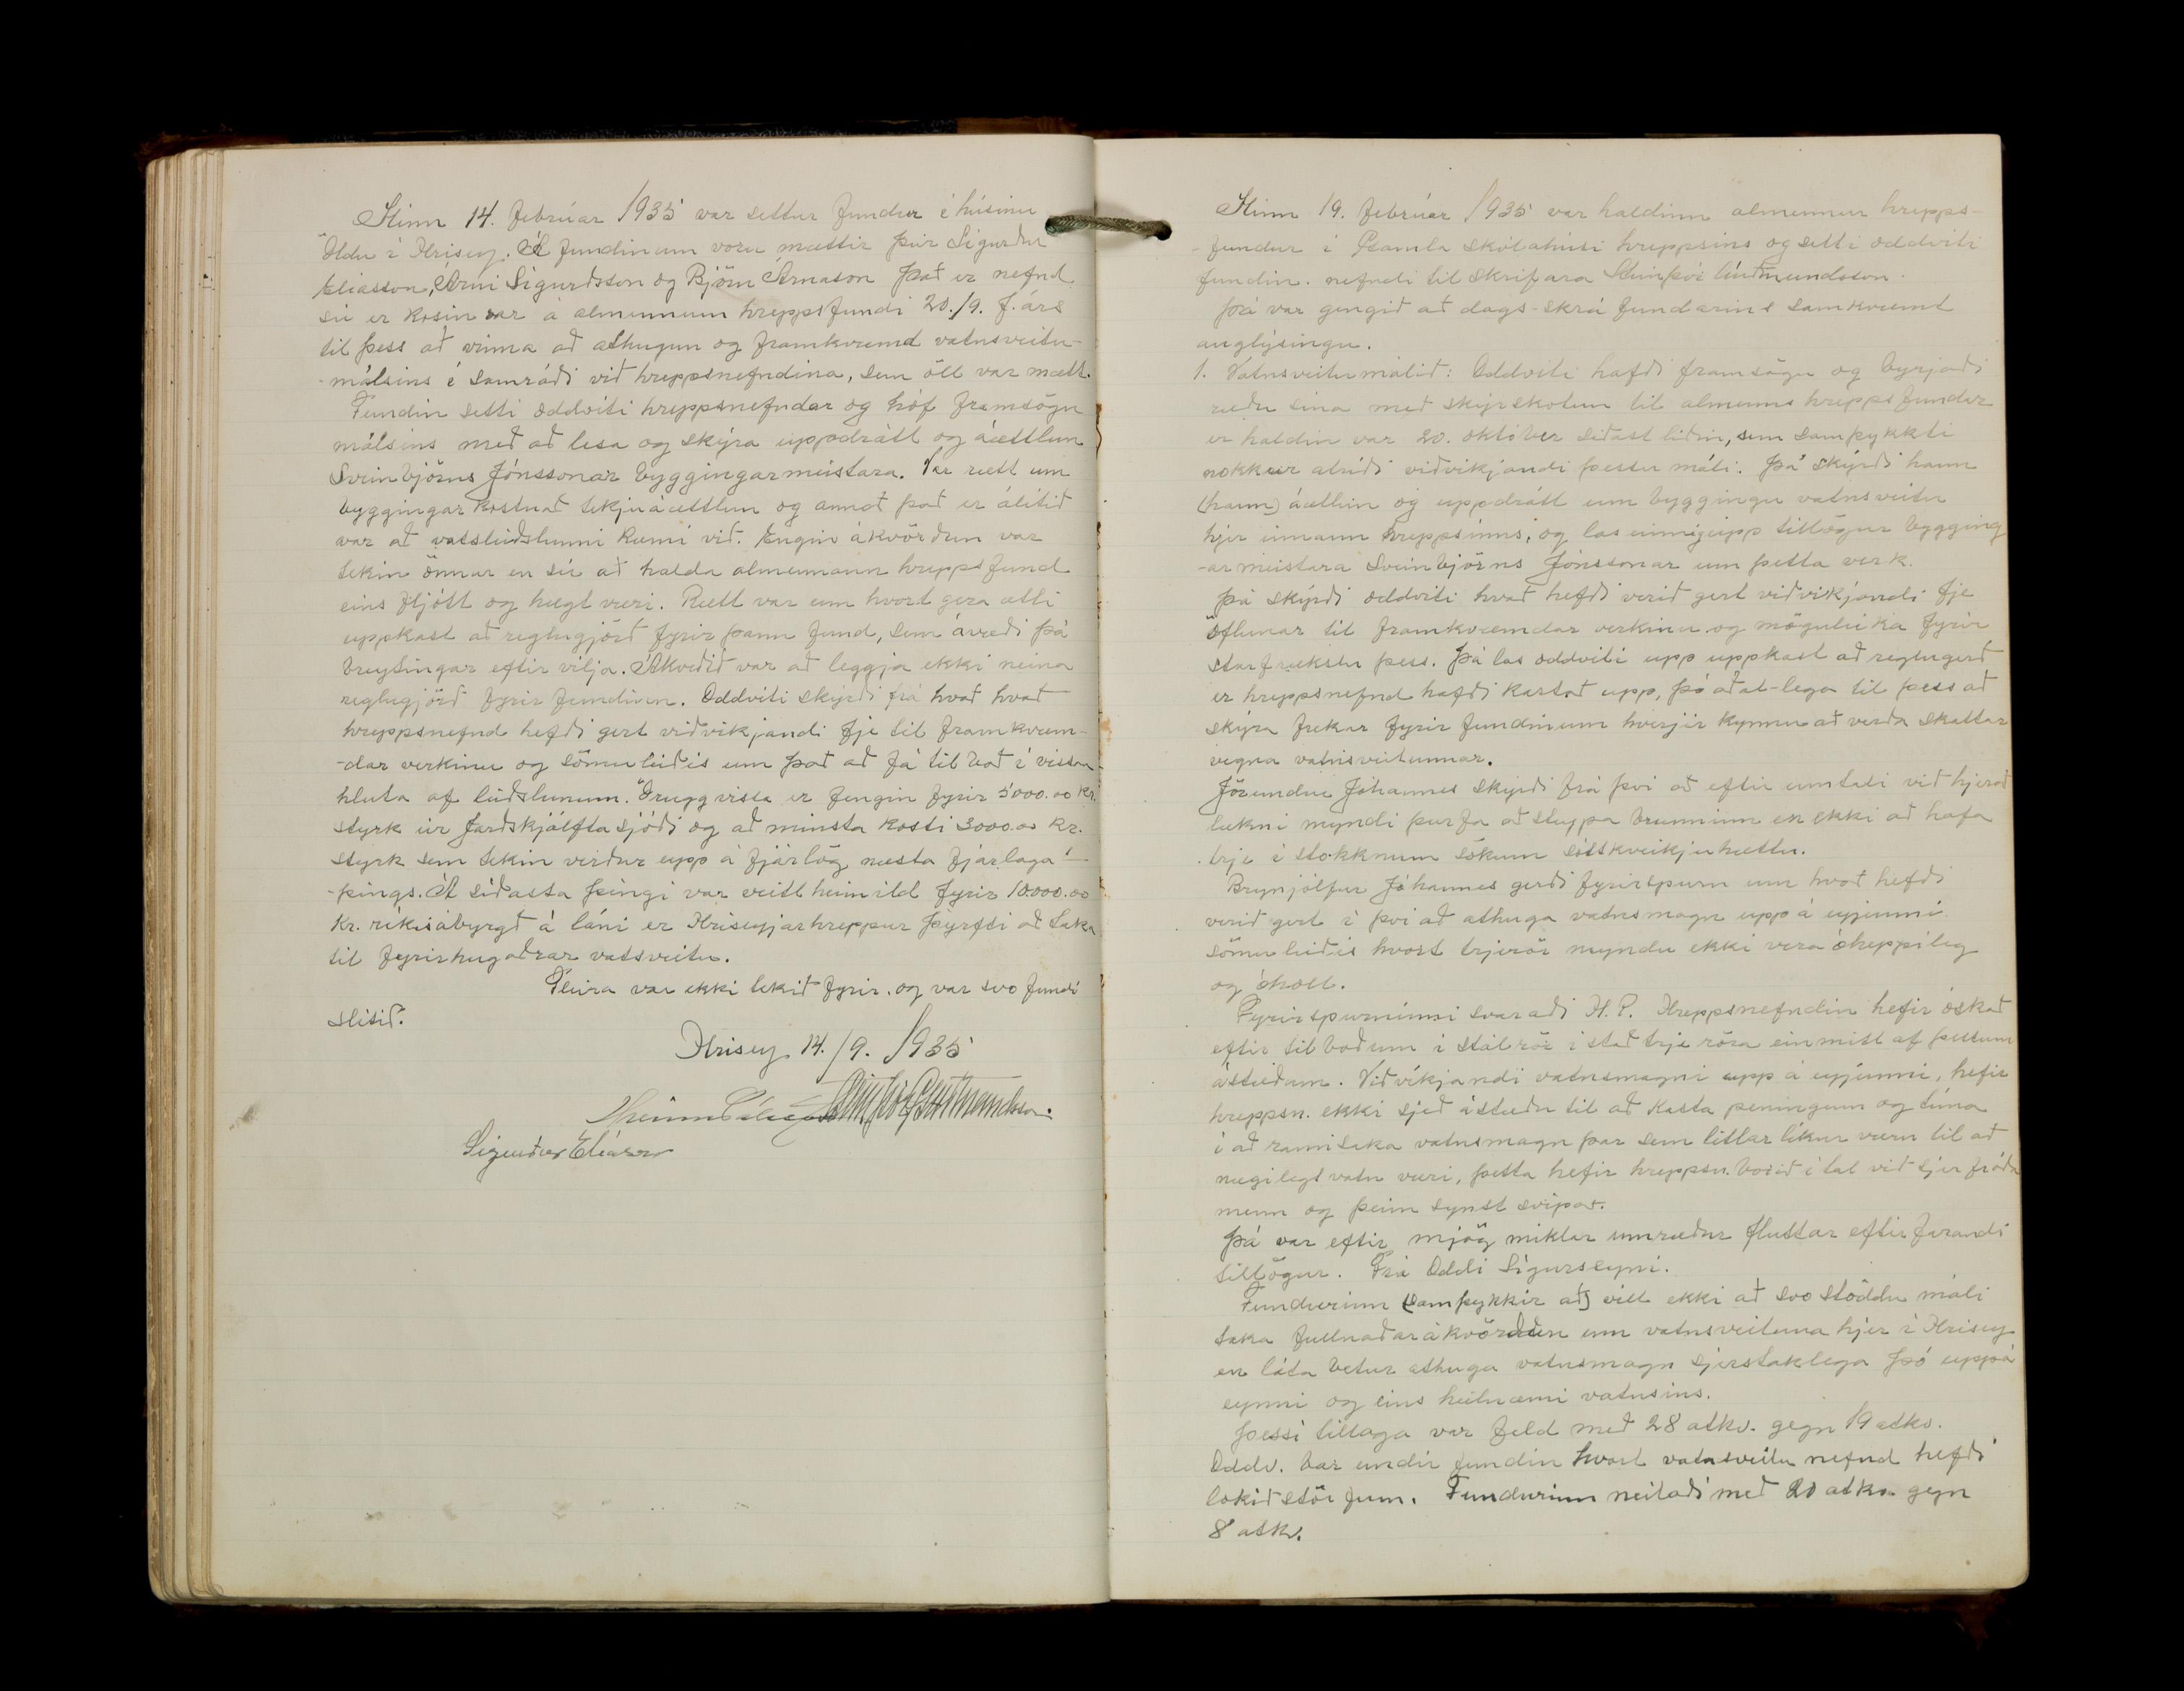 Hinn 14. febrúar 1935 var settur fundur í húsinu
Öldu í Hrísey. Á fundinum voru mættir þeir Sigurður
Elíasson, Árni Sigurðsson og Björn Árnason það er nefnd
sú er kosin var á almennum hreppsfundi 20./9. f. árs
til þess að vinna að athugun og framkvæmd vatnsveitu-
-málsins í samráði við hreppsnefndina, sem öll var mætt.
Fundin setti oddviti hreppsnefndar og hóf framsögn
málsins með að lesa og skýra uppdrátt og áættlun
Sveinbjörns Jónssonar byggingarmeistara. Var rætt um
byggingarkostnað tekjuáættlun og annað það er álitið
var að vatsleiðslunni kæmi við. Engin ákvörðun var
tekin önnur en sú að halda almennann hreppsfund
eins fljótt og hægt væri. Rætt var um hvort gera ætti
uppkast að reglugjörð fyrir þann fund, sem ávæði þá
breytingar eftir vilja. Ákveðið var að leggja ekki neina
reglugjörð fyrir fundinn. Oddviti skýrði frá hvað hvað
hreppsnefnd hefði gert viðvikjandi fje til framkvem-
-dar verkinu og sömuleiðis um það að fá tilboð í vissan
hluta af leiðslunum. Örugg vissa er fengin fyrir 5000.00 kr.
styrk úr Jarðskjálftasjóði og að minsta kosti 3000.00 kr.
styrk sem tekin verður upp á fjárlög næsta fjárlaga-
-þings. Á síðasta þingi var veitt heimild fyrir 10.000.00
kr. ríkisábyrgð á láni er Hríseyjarhreppur þyrfti að taka
til fyrirhugaðrar vatsveitu.
Fleira var ekki tekið fyrir. og var svo fundi
slitið.
Hrísey 14./9. 1935
Steinþór Guðmundsson.
Sigurður Elíasson
Hinn 19. febrúar 1935 var haldinn almennur hrepps-
-fundur í Gamla skólahúsi hreppsins og setti oddviti
fundin. nefndi til skrifara Steinþór Guðmundsson.
Þá var gengið að dags-skrá fundarins samkvæmt
auglýsingu.
1. Vatnsveitumálið: Oddviti hafði framsögu og byrjaði
ræðu sína með skýrskotun til almenns hreppsfundar
er haldin var 20. október síðast liðin, sem samþykkti
nokkur atriði viðvikjandi þessu máli. Þá skýrði hann
(hann) áætlun og uppdrátt um byggingu vatnsveitu
hjer innann hreppsinns, og las einnig upp tillögur bygging
-armeistara Sveinbjörns Jónssonar um þetta verk.
Þá skýrði oddviti hvað hefði verið gert viðvikjandi fje
öflunar til framkvæmdar verkinu og möguleika fyrir
starfrækslu þess. Þá las oddviti upp uppkast að reglugerð
er hreppsnefnd hafði kastað upp, þó aðal-lega til þess að
skýra frekar fyrir fundinum hverjir kynnu að verða skattar
vegna vatnsveitunnar.
Jörundur Jóhannes skýrði frá því að eftir umtali við hjerað
lækni myndi þurfa að steypa brunninn en ekki að hafa
trje í stokknum sökum sóttkveikjuhættu.
Brynjólfur Jóhannes gerði fyrirspurn um hvað hefði
verið gert í því að athuga vatnsmagn upp á eyjunni
sömuleiðis hvort trjerör myndu ekki vera óheppileg
og óholl.
Fyrirspurninni svaraði H.P. Hreppsnefndin hefir óskað
eftir tilboðum í stálrör í stað trje röra einmitt af þessum
ástæðum. Viðvíkjandi vatnsmagni upp á eyjunni, hefir
hreppsn. ekki sjeð ástæðu til að kasta peningum og tíma
í að rannsaka vatnsmagn þar sem litlar líkur væru til að
nægilegt vatn væri, þetta hefir hreppsn. borið í tal við sjer fróða
menn og þeim synst svipað.
Þá var eftir mjög miklar umræður fluttar eftirfarandi
tillögur. Frá Oddi Sigurseyni.
Fundurinn (samþykkir að) vill ekki að svo stöddu máli
taka fullnaðarákvörðun um vatnsveituna hjer í Hrísey
en láta betur athuga vatnsmagn sjerstaklega þó uppá
eynni og eins heilnæmi vatnsins.
Þessi tillaga var feld með 28 atkv. gegn 19 atkv.
Oddv. bar undir fundin hvort vatnsveitu nefnd hefði
lokið störfum. Fundurinn neitaði með 20 atkv. gegn
8 atkv.